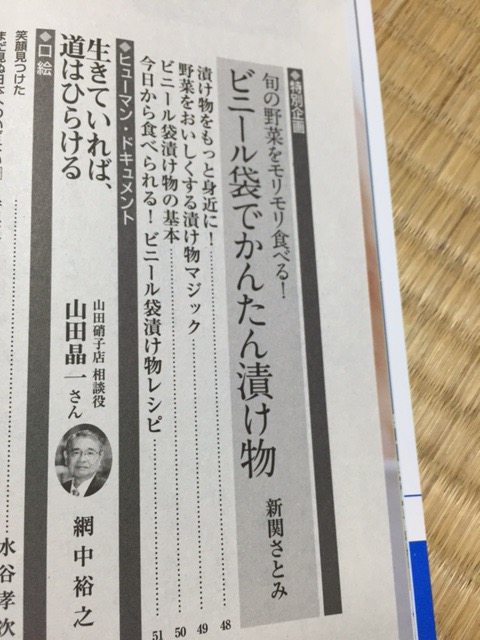 ◆特別企画
旬の野菜をモリモリ食べる！
ビニール袋でかんたん漬け物
新関さとみ
漬け物をもっと身近に！ 48
野菜をおいしくする漬け物マジック 49
ビニール袋漬け物の基本 50
今日から食べられる！ ビニール袋漬け物レシピ 51
◆ヒューマン・ドキュメント
生きていれば、
道はひらける
山田硝子店 相談役
山田晶一さん
網中裕之
◆口絵
笑顔見つけた
水谷孝次